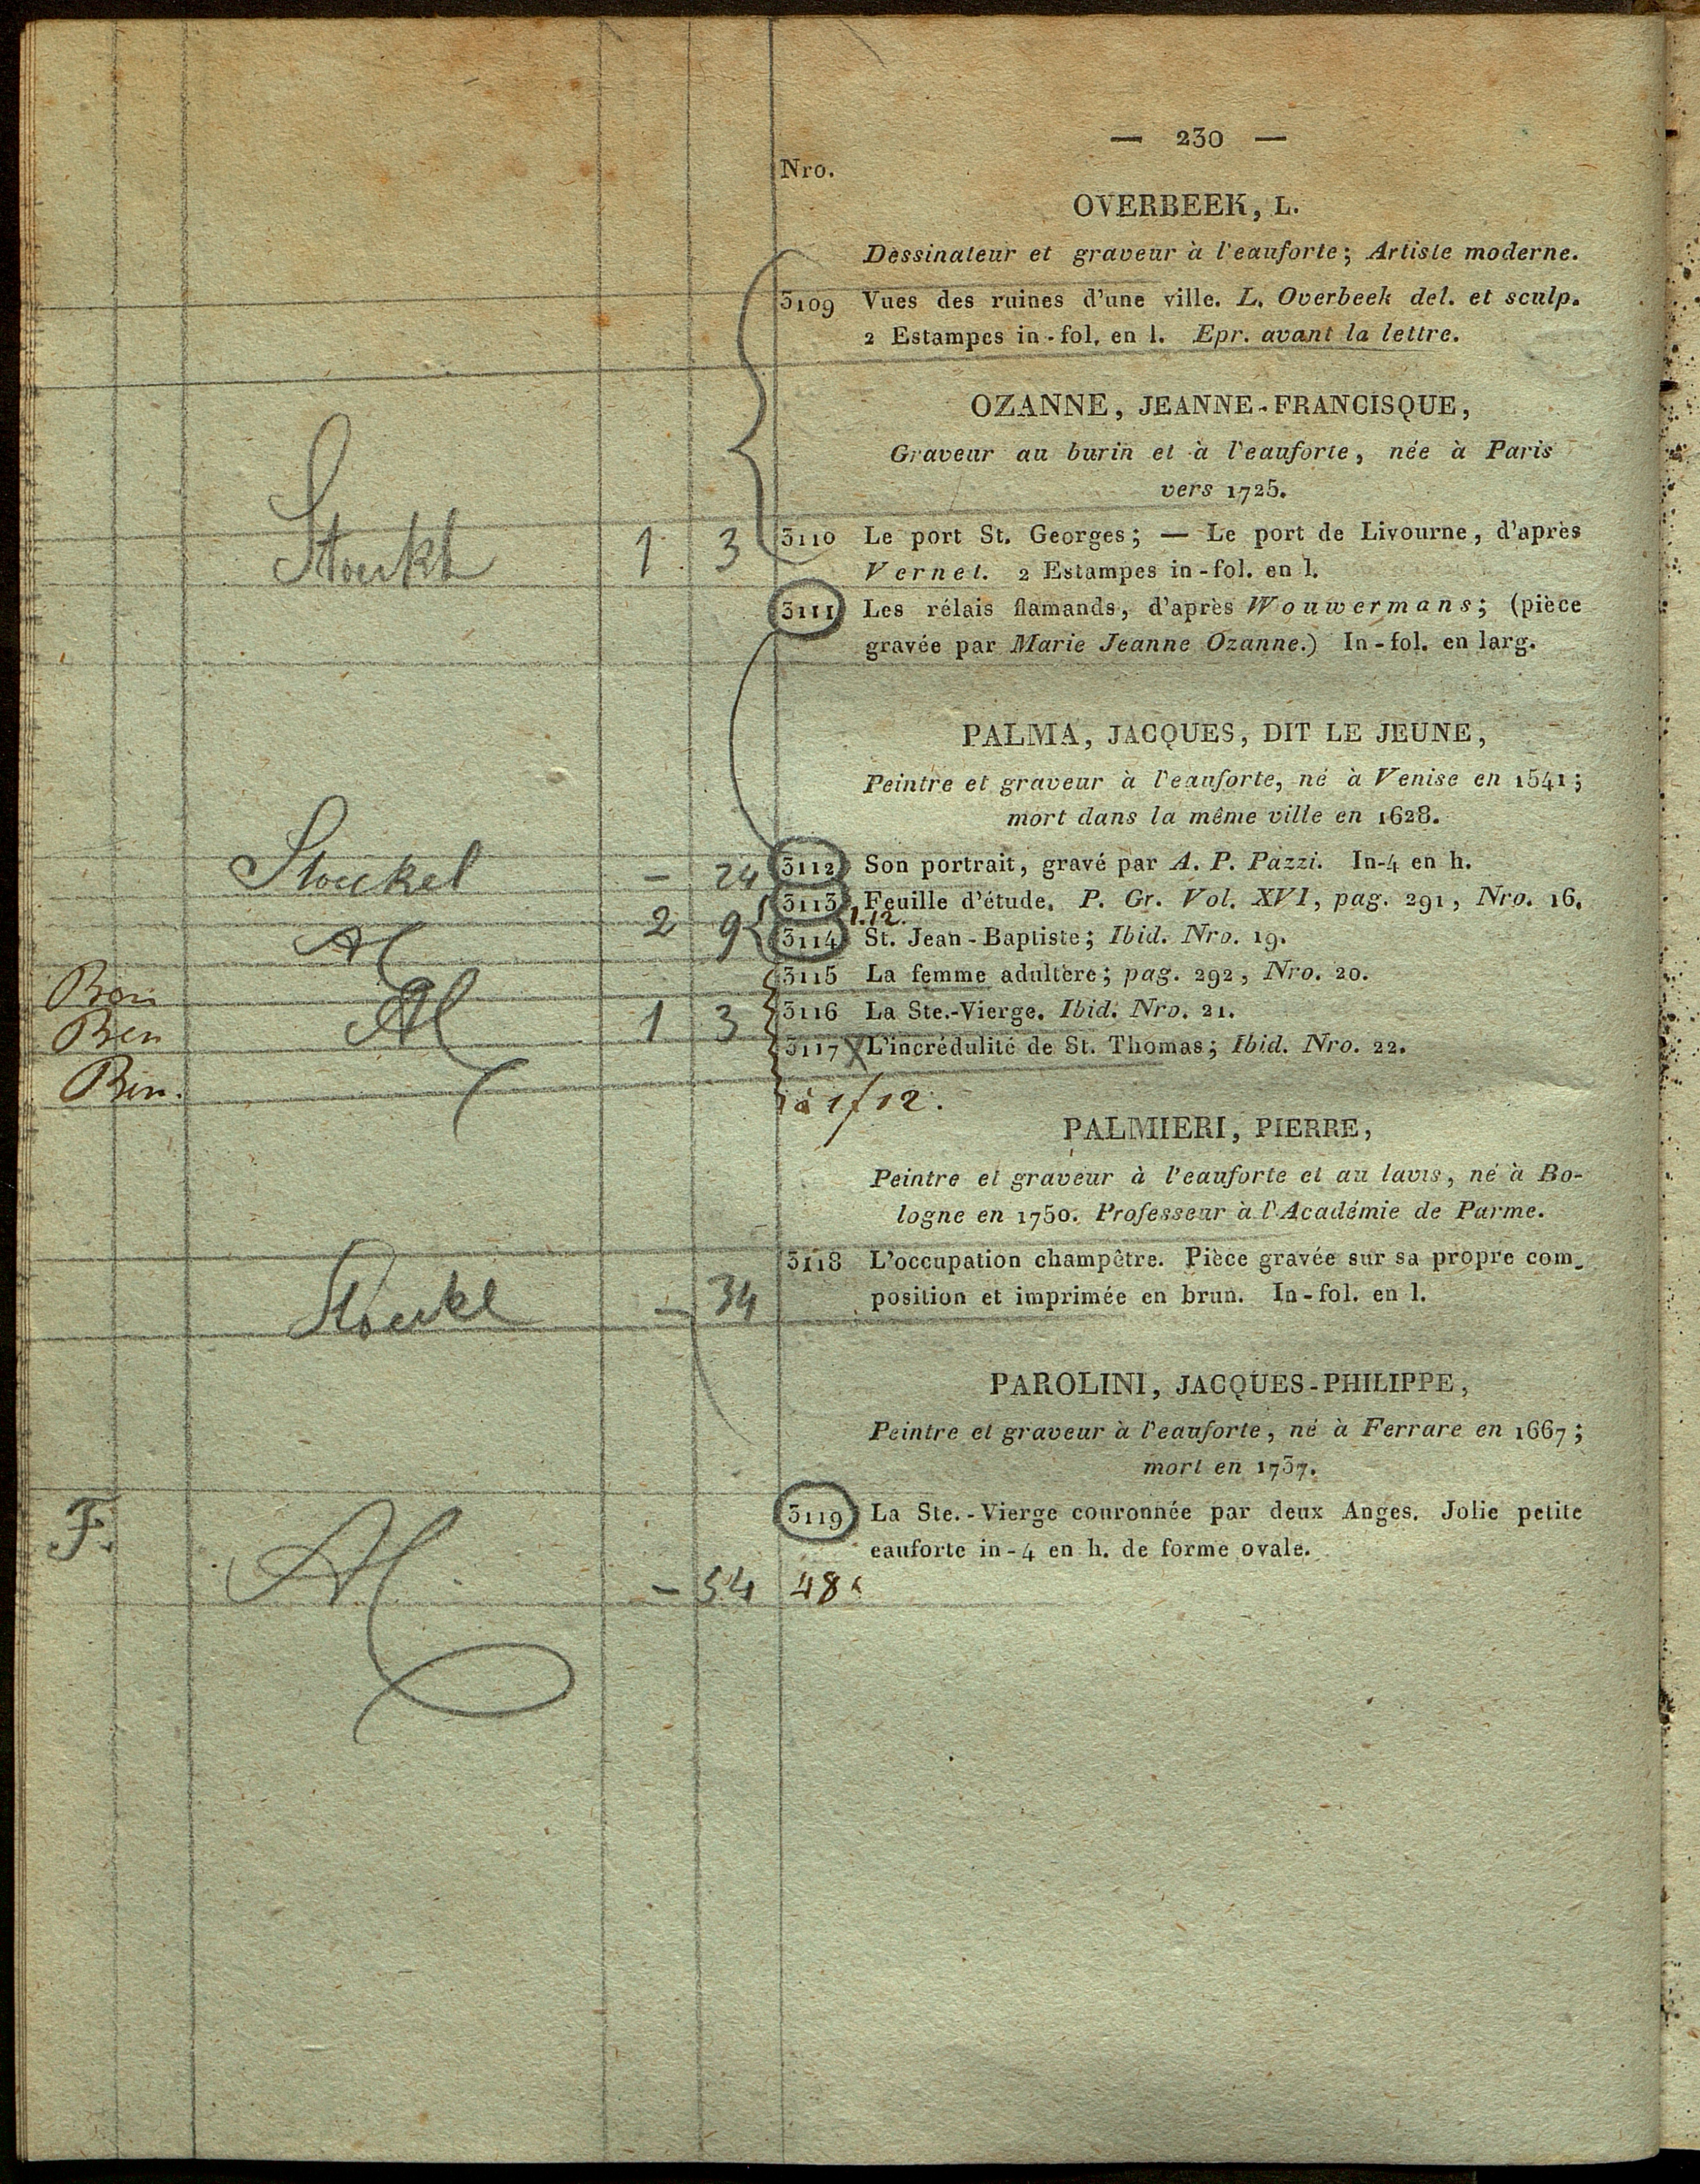 — 230 —
Nro.
OVERBEEK, L.
Dessinateur et graveur à l'eauforte; Artiste moderne.
3109 Vues des ruines d'une ville. L. Overbeek del. et sculp.
2 Estampes in-fol. en l. Epr. avant la lettre.
OZANNE, JEANNE-FRANCISQUE,
Graveur au burin et à l'eauforte, née à Paris
vers 1725.
1 3 3110 Le port St. Georges; — Le port de Livourne, d'après
Vernet. 2 Estampes in-fol. en l.
3111 Les rélais flamands, d'après Wouwermans; (pièce
gravée par Marie Jeanne Ozanne.) In-fol. en larg.
PALMA, JACQUES, DIT LE JEUNE,
Peintre et graveur à l'eauforte, né à Venise en 1541;
mort dans la même ville en 1628.
Stoeckel — 24 3112 Son portrait, gravé par A. P. Pazzi. In-4 en h.
3113 Feuille d'étude. P. Gr. Vol. XVI, pag. 291, Nro. 16.
2 9 1.12.
3114 St. Jean-Baptiste; Ibid. Nro. 19.
3115 La femme adultère; pag. 292, Nro. 20.
Ben 1 3 3116 La Ste.-Vierge. Ibid. Nro. 21.
3117 X L'incrédulité de St. Thomas; Ibid. Nro. 22.
Ben. à 1f 12.
PALMIERI, PIERRE,
Peintre et graveur à l'eauforte et au lavis, né à Bo-
logne en 1750. Professeur à l'Académie de Parme.
3118 L'occupation champêtre. Pièce gravée sur sa propre com-
— 34 position et imprimée en brun. In-fol. en l.
PAROLINI, JACQUES-PHILIPPE,
Peintre et graveur à l'eauforte, né à Ferrare en 1667;
mort en 1737.
F. 3119 La Ste.-Vierge couronnée par deux Anges. Jolie petite
eauforte in-4 en h. de forme ovale.
— 54 48